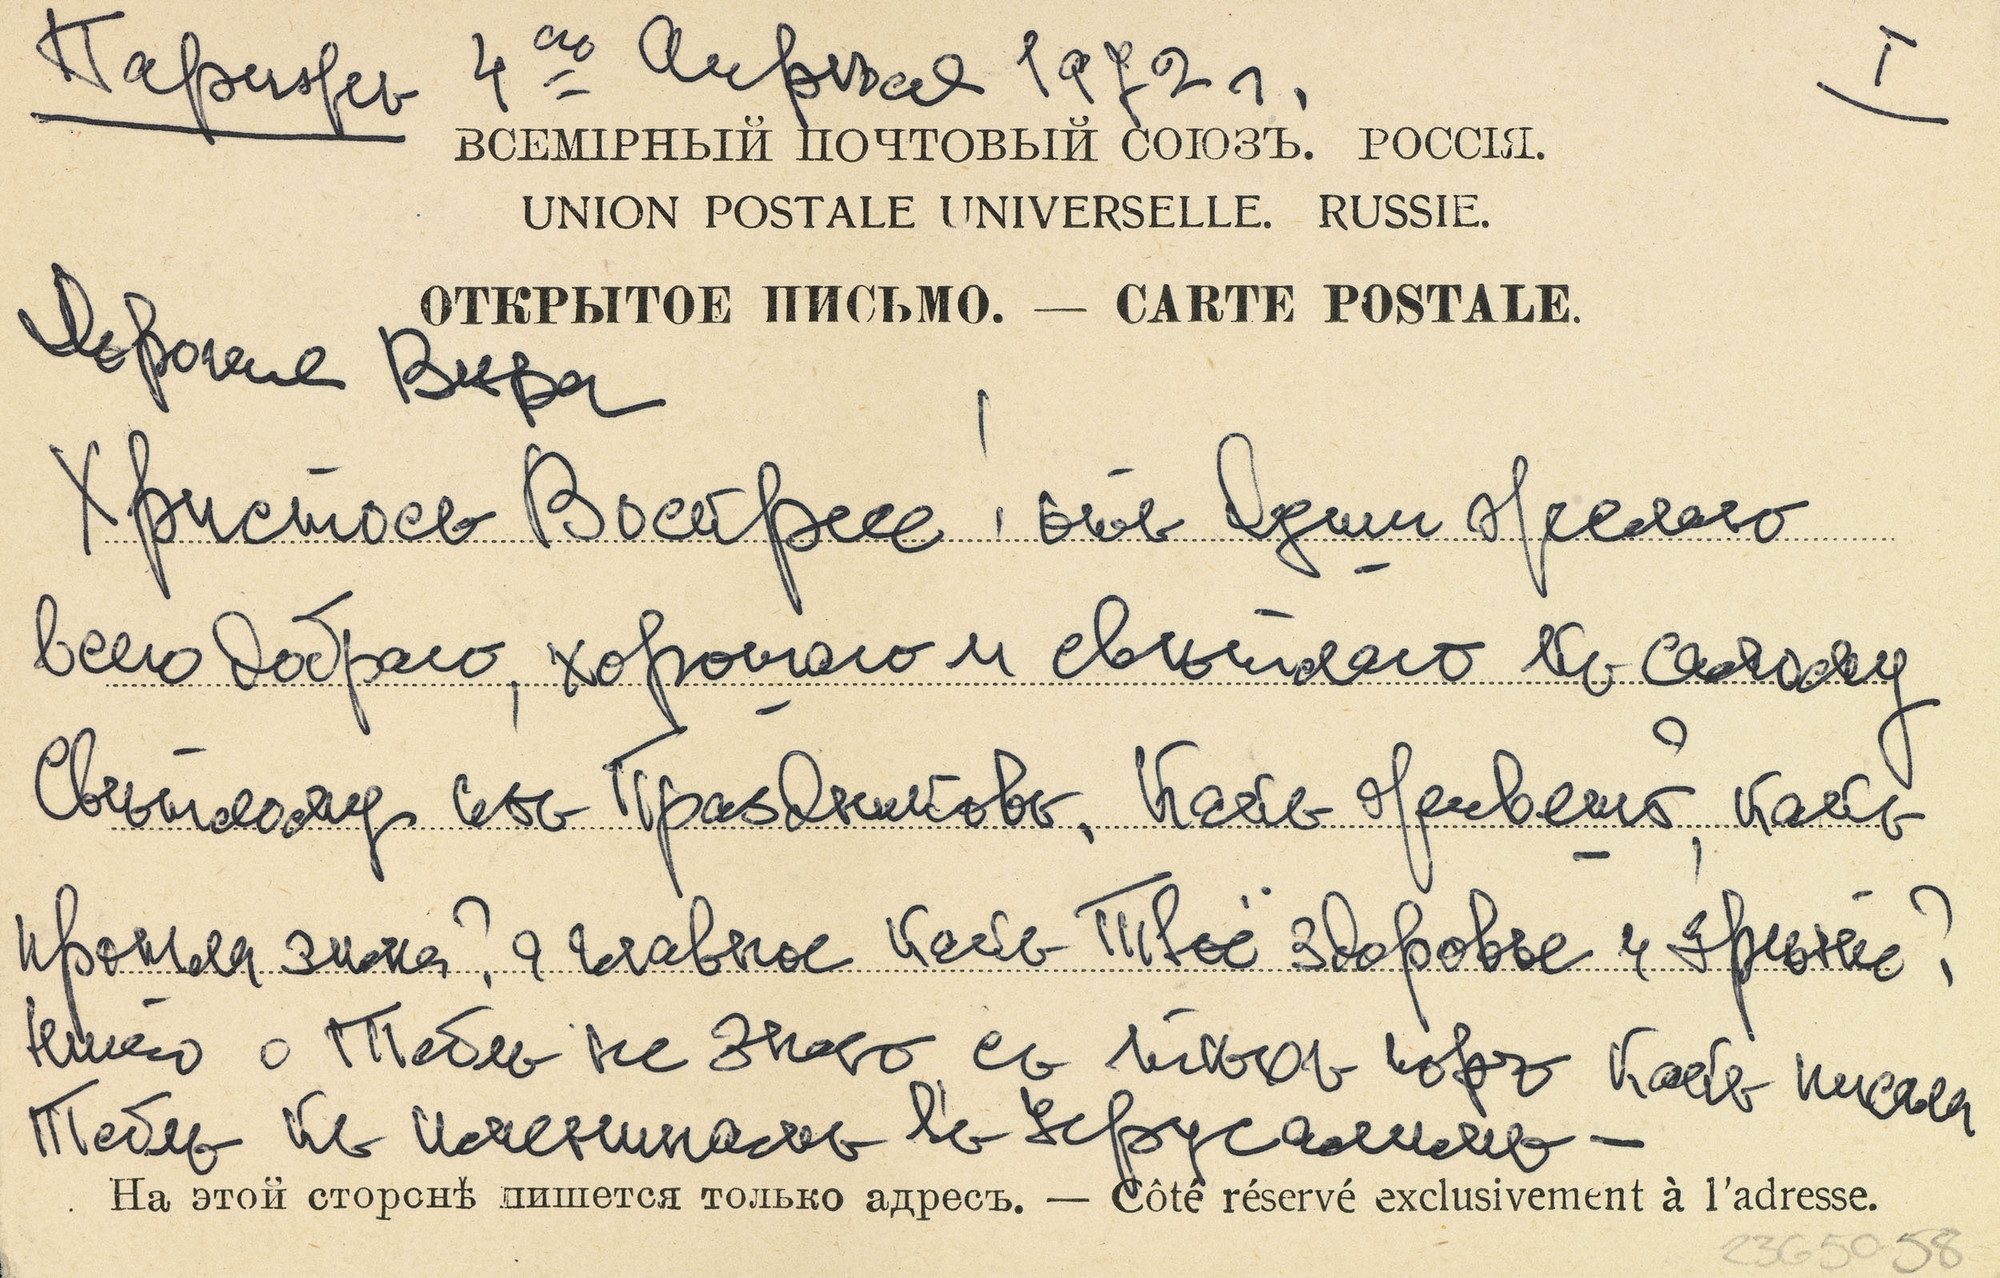 Парижъ 4го Апрѣля 1972 г. I
ВСЕМІРНЫЙ ПОЧТОВЫЙ СОЮЗЪ. РОССІЯ.
UNION POSTALE UNIVERSELLE. RUSSIE.
ОТКРЫТОЕ ПИСЬМО. — CARTE POSTALE.
Дорогая Вѣра
Христосъ Воскресе! отъ Души желаю
всего добраго, хорошаго и свѣтлаго къ самому
Свѣтлому изъ Праздниковъ. Какъ живешь, какъ
прошла зима? а главное какъ Твоё здоровье и зрѣніе?
Ничего о Тебѣ не знаю съ тѣхъ поръ какъ писала
Тебѣ къ именинамъ въ Іерусалимъ —
На этой сторонѣ пишется только адресъ. — Côté réservé exclusivement à l'adresse.
23650-58